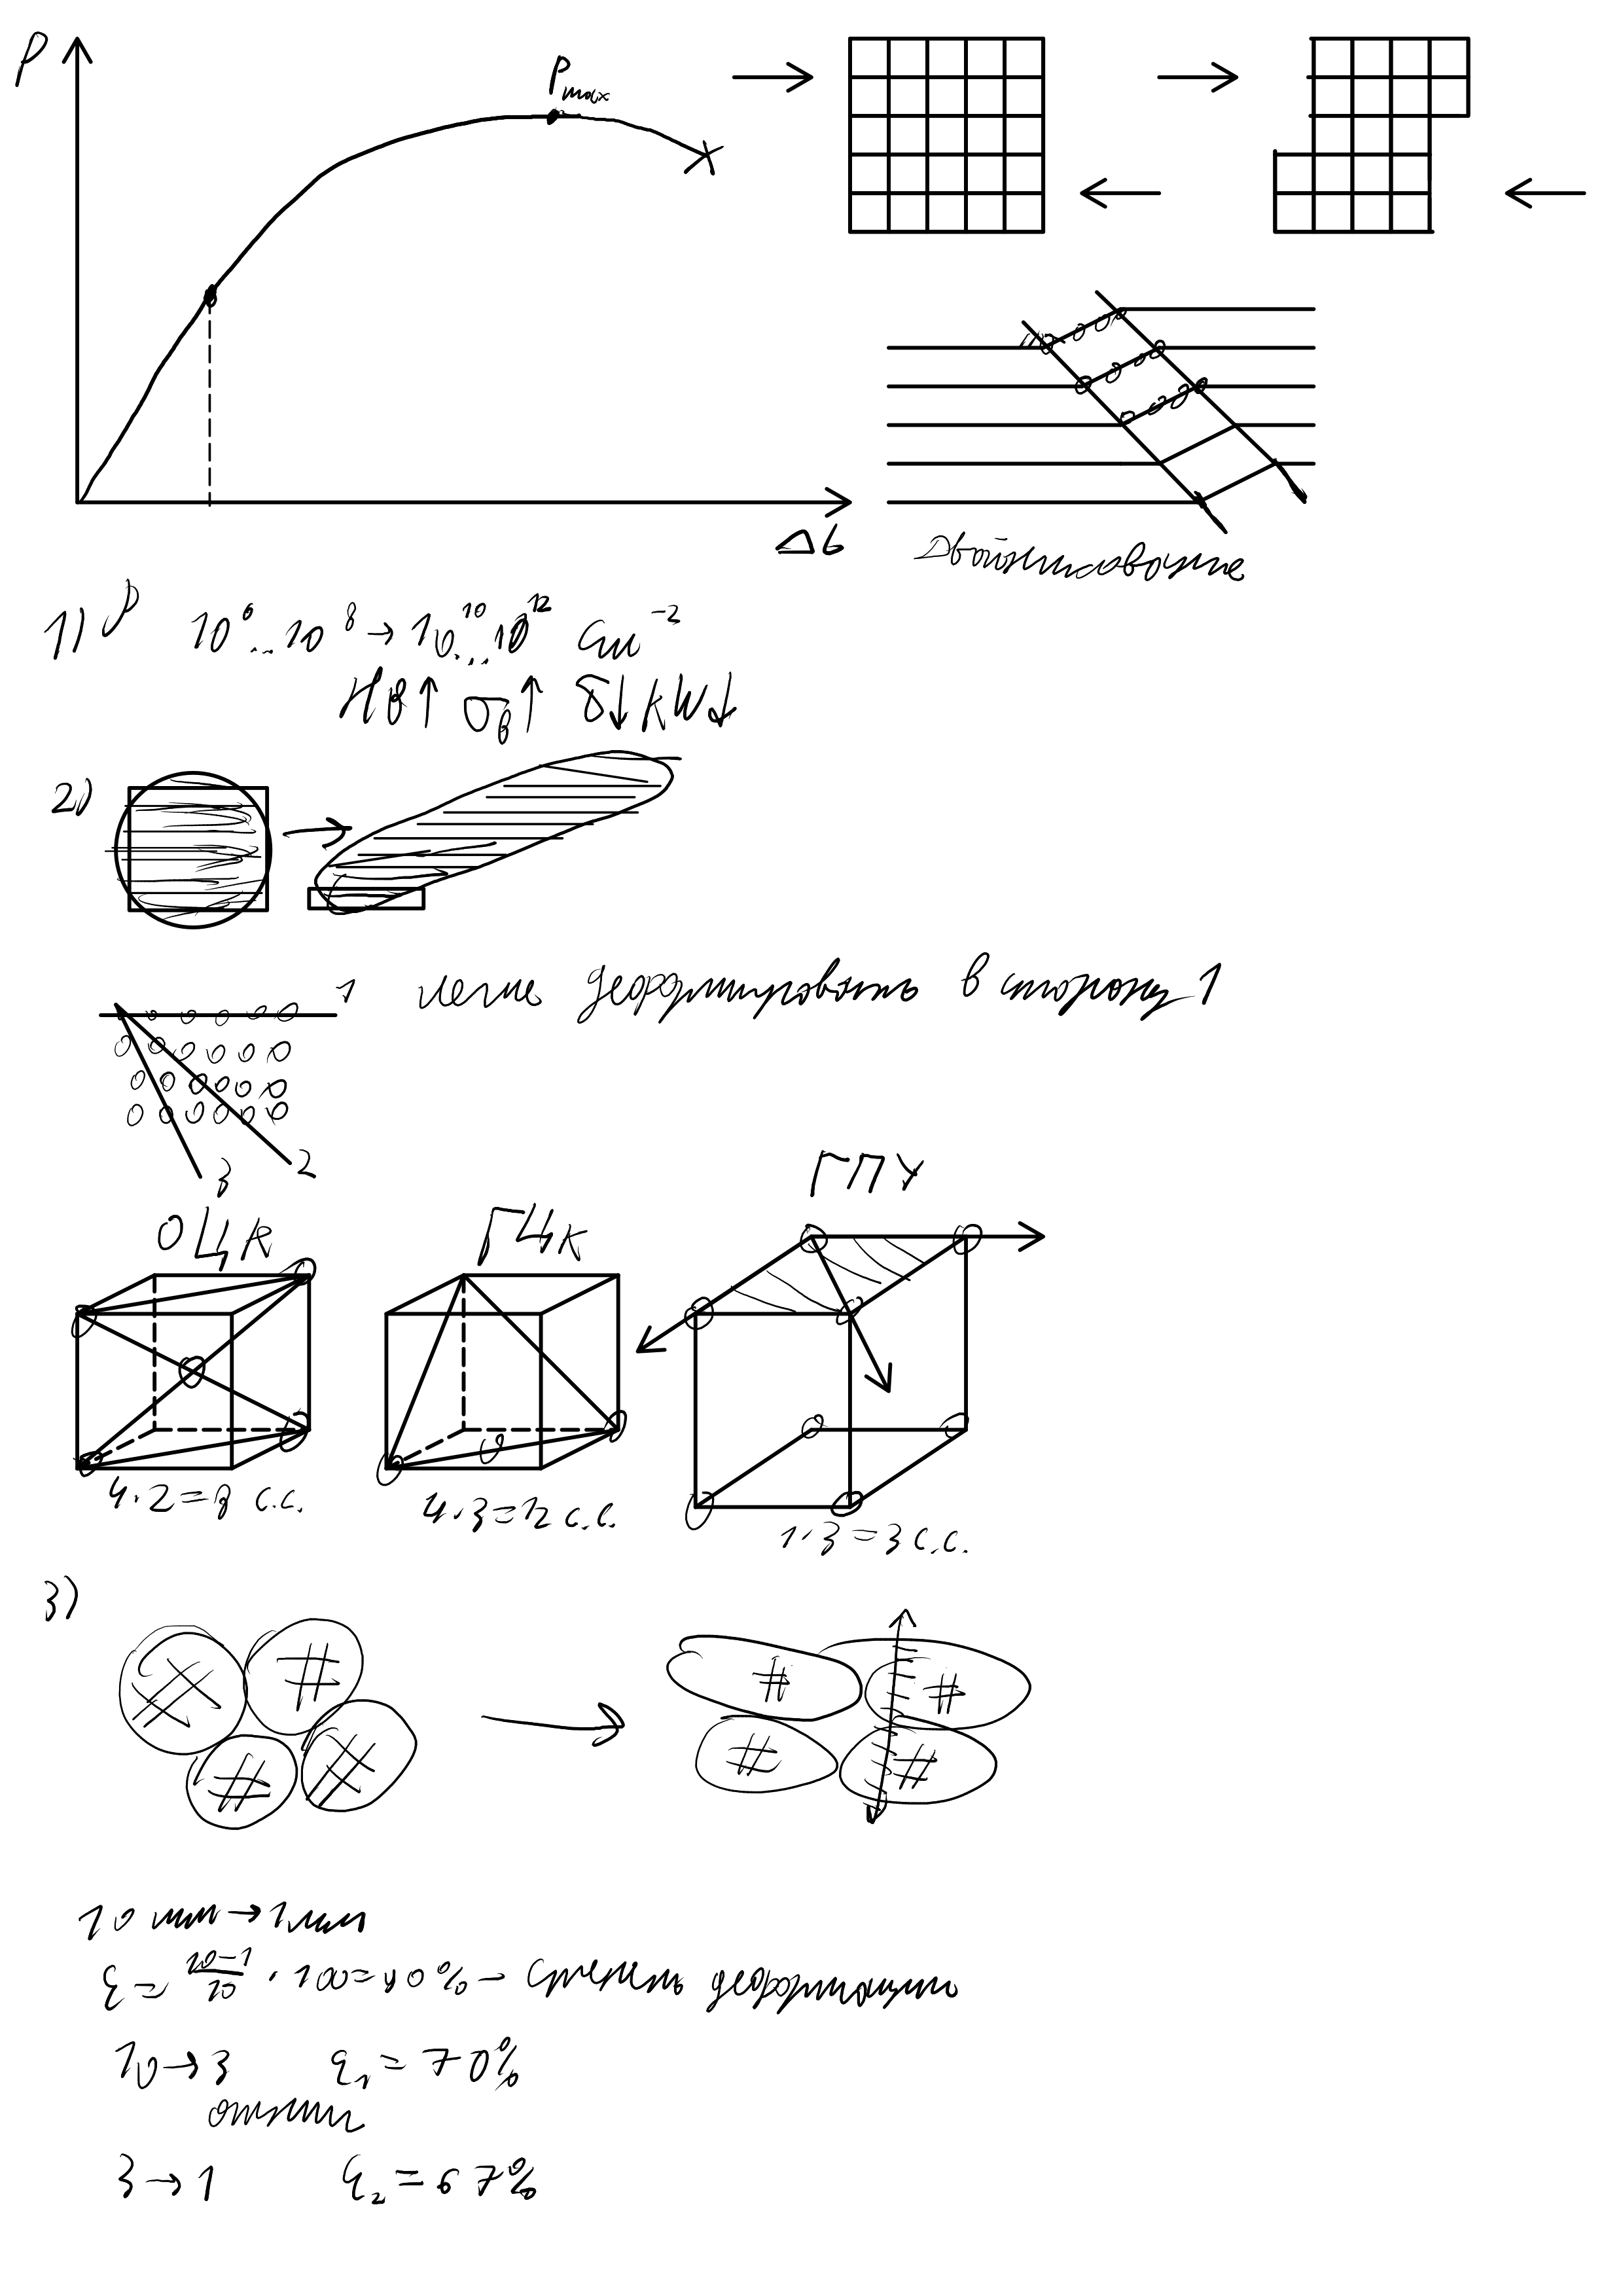 P
Pmax
Δб
Двойникование
1) ρ 10⁶...10⁸ → 10¹⁰...10¹² см⁻²
HB↑ σв↑ δ↓ KCU↓
2)
1 легче деформировать в сторону 1
3 2
ОЦК ГЦК ГПУ
4·2=8 с.с. 4·3=12 с.с. 1·3=3 с.с.
3)
10 мм → 1 мм
ε = (10-1)/10 · 100 = 90% - степень деформации
10 → 3 ε₁ = 70%
отжиг
3 → 1 ε₂ = 67%